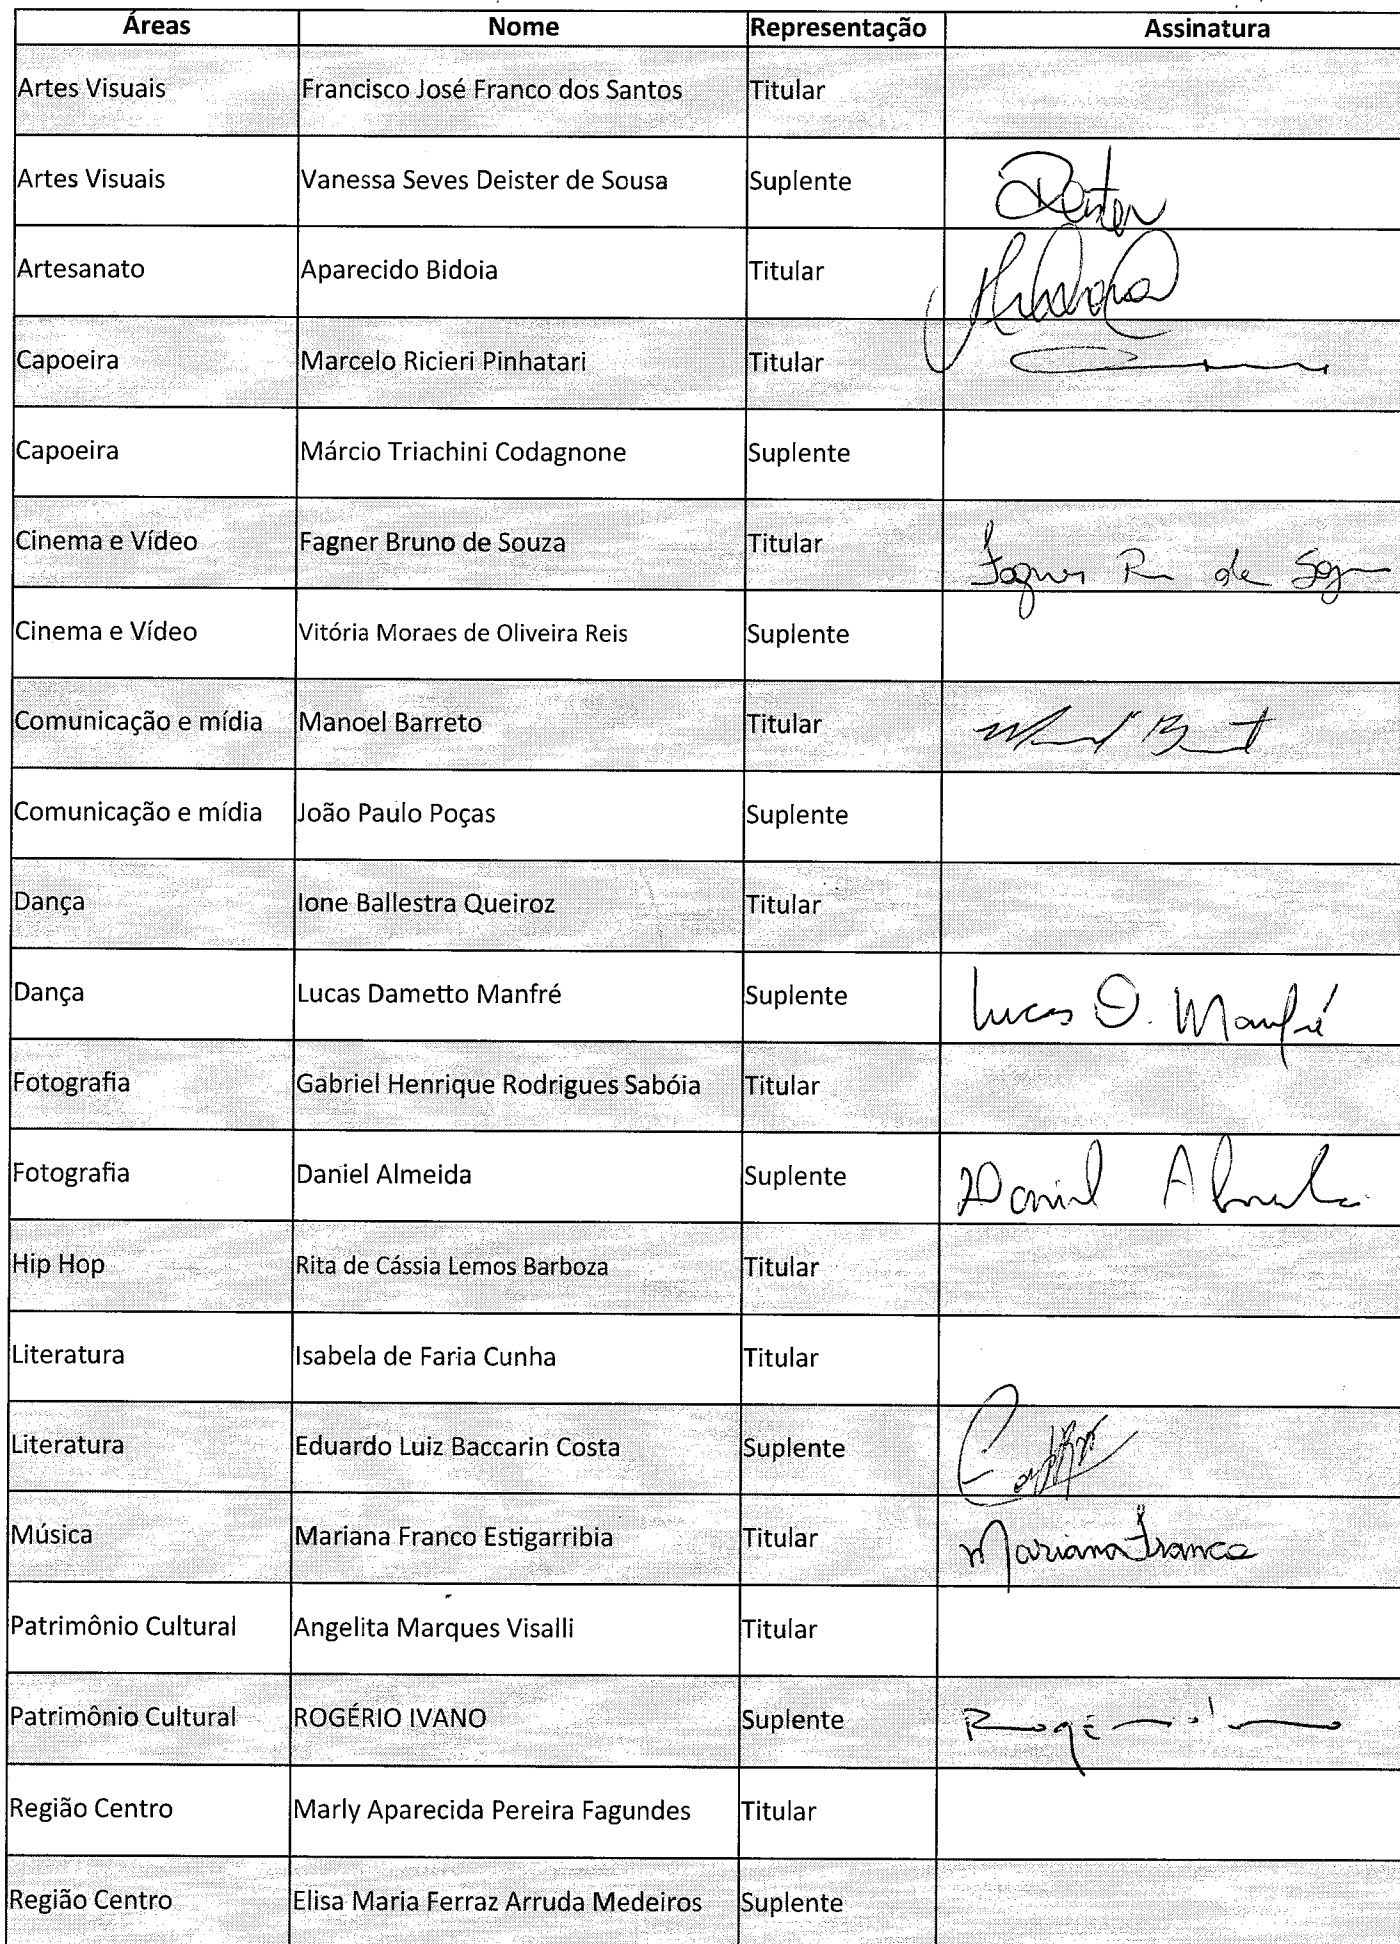 Áreas Nome Representação Assinatura
Artes Visuais Francisco José Franco dos Santos Titular
Artes Visuais Vanessa Seves Deister de Sousa Suplente Deister
Artesanato Aparecido Bidoia Titular
Capoeira Marcelo Ricieri Pinhatari Titular
Capoeira Márcio Triachini Codagnone Suplente
Cinema e Vídeo Fagner Bruno de Souza Titular Fagner de
Cinema e Vídeo Vitória Moraes de Oliveira Reis Suplente
Comunicação e mídia Manoel Barreto Titular
Comunicação e mídia João Paulo Poças Suplente
Dança Ione Ballestra Queiroz Titular
Dança Lucas Dametto Manfré Suplente Lucas D. Manfré
Fotografia Gabriel Henrique Rodrigues Sabóia Titular
Fotografia Daniel Almeida Suplente Daniel Almeida
Hip Hop Rita de Cássia Lemos Barboza Titular
Literatura Isabela de Faria Cunha Titular
Literatura Eduardo Luiz Baccarin Costa Suplente
Música Mariana Franco Estigarribia Titular Mariana Franco
Patrimônio Cultural Angelita Marques Visalli Titular
Patrimônio Cultural ROGÉRIO IVANO Suplente
Região Centro Marly Aparecida Pereira Fagundes Titular
Região Centro Elisa Maria Ferraz Arruda Medeiros Suplente